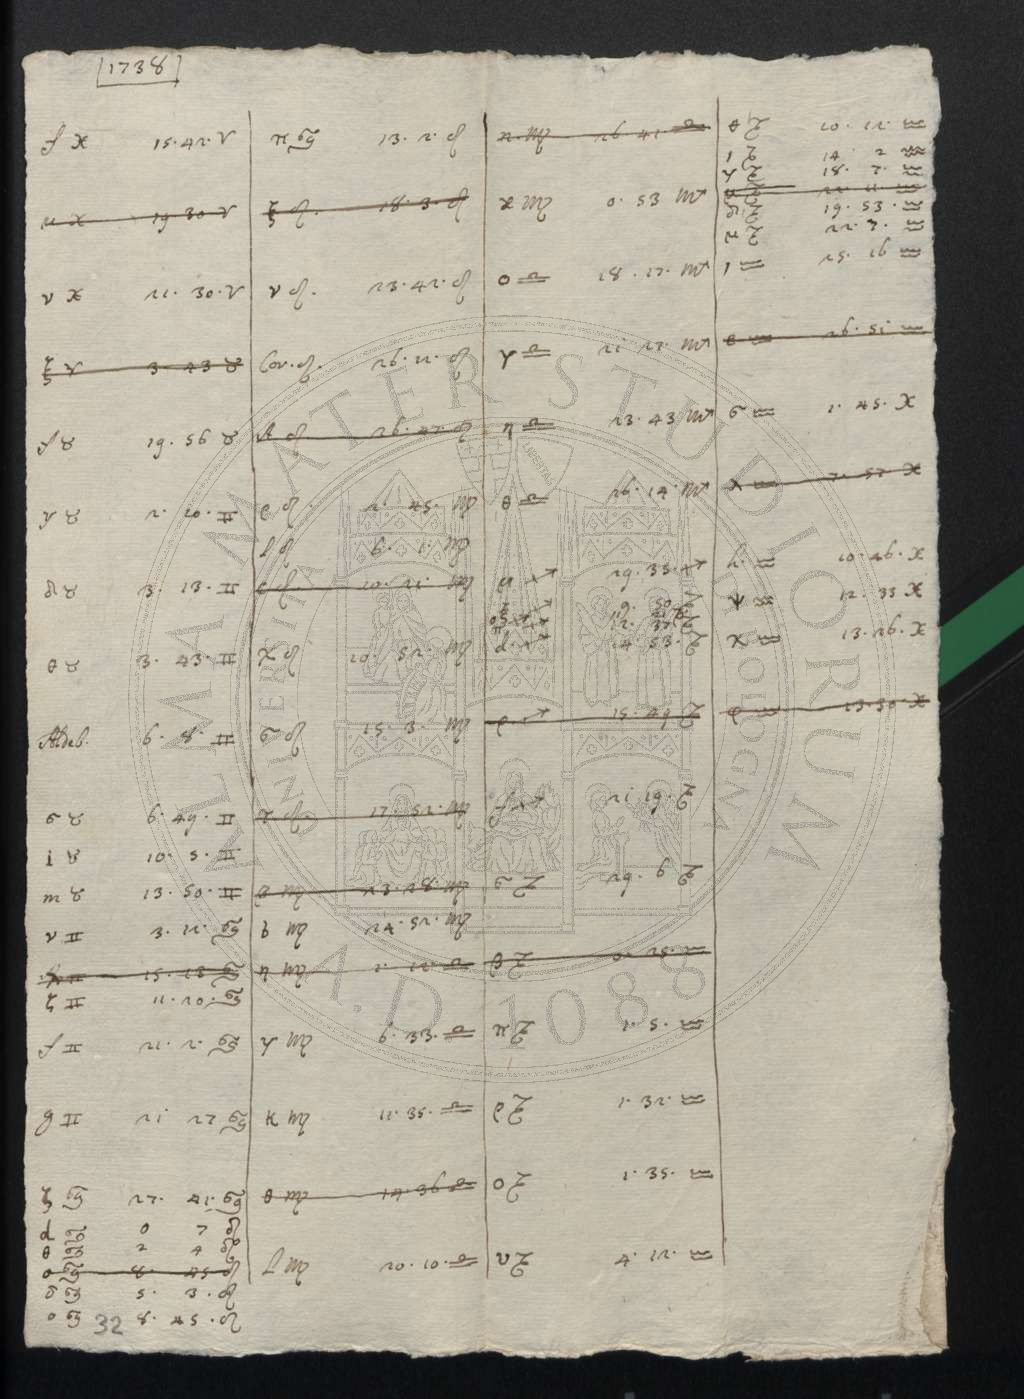 1738
f ♓ 15. 42. ♈
u ♓ 19 30 ♈
ν ♓ 21. 30. ♈
ξ ♈ 3 43 ♉
f ♉ 19. 56 ♉
γ ♉ 2. 20. ♊
δ ♉ 3. 13. ♊
θ ♉ 3. 43. ♊
Aldeb. 6. 8. ♊
σ ♉ 6. 49. ♊
i ♉ 10. 5. ♊
m ♉ 13. 50. ♊
ν ♊ 3. 12. ♋
♊ 15. 28 ♋
ζ ♊ 11. 20. ♋
f ♊ 21. 2. ♋
g ♊ 21 27 ♋
ζ ♋ 27. 41. ♋
d ♋ 0 7 ♌
θ ♋ 2 4 ♌
o ♋ 8. 45 ♌
σ ♋ 5. 3. ♌
o ♋ 8. 45. ♌
32
π ♋ 13. 2. ♌
ξ ♌. 18. 3 ♌
ν ♌. 23. 42. ♌
Cor. ♌. 26. 12. ♌
A ♌ 26. 47. ♌
ρ ♌. 2. 45. ♍
♌ 6. 1. ♍
♌ 10. 21. ♍
χ ♌ 10. 52. ♍
σ ♌ 15. 3. ♍
τ ♌. 17. 52. ♍
♍ 23. 28. ♍
q ♍ 24. 52. ♍
η ♍ 1. 12. ♎
γ ♍ 6. 33. ♎
κ ♍ 11. 35. ♎
θ ♍ 14. 36 ♎
♍ 20. 10. ♎
♍ 26 41 ♎
κ ♍ 0. 53 ♏
o ♎ 18. 17. ♏
γ ♎ 21 22. ♏
η ♎ 23. 43 ♏
θ ♎ 26. 14. ♏
♐ 29. 35. ♐
ξ ♐ 9. 50. ♑
o ♐ 11. 21 ♑
π ♐ 12. 37. ♑
d. ♐ 14. 53. ♑
ρ ♐ 15. 49 ♑
f ♐ 21 19. ♑
σ ♑ 29. 6 ♑
β ♑ 0. 25. ♒
π ♑ 1. 5. ♒
ρ ♑ 1. 32. ♒
o ♑ 1. 35. ♒
υ ♑ 4. 12. ♒
θ ♑ 10. 12. ♒
ι ♑ 14 2 ♒
γ ♑ 18. 7. ♒
♑ 22 11. ♒
δ ♑ 19. 53. ♒
♑ 22. 3. ♒
ι ♒ 25. 16 ♒
♒ 26. 51 ♒
σ ♒ 1. 45. ♓
λ ♒ 7. 57 ♓
h. ♒ 10. 46. ♓
ψ ♒ 12. 33 ♓
χ ♒ 13. 26. ♓
φ ♒ 13 30 ♓